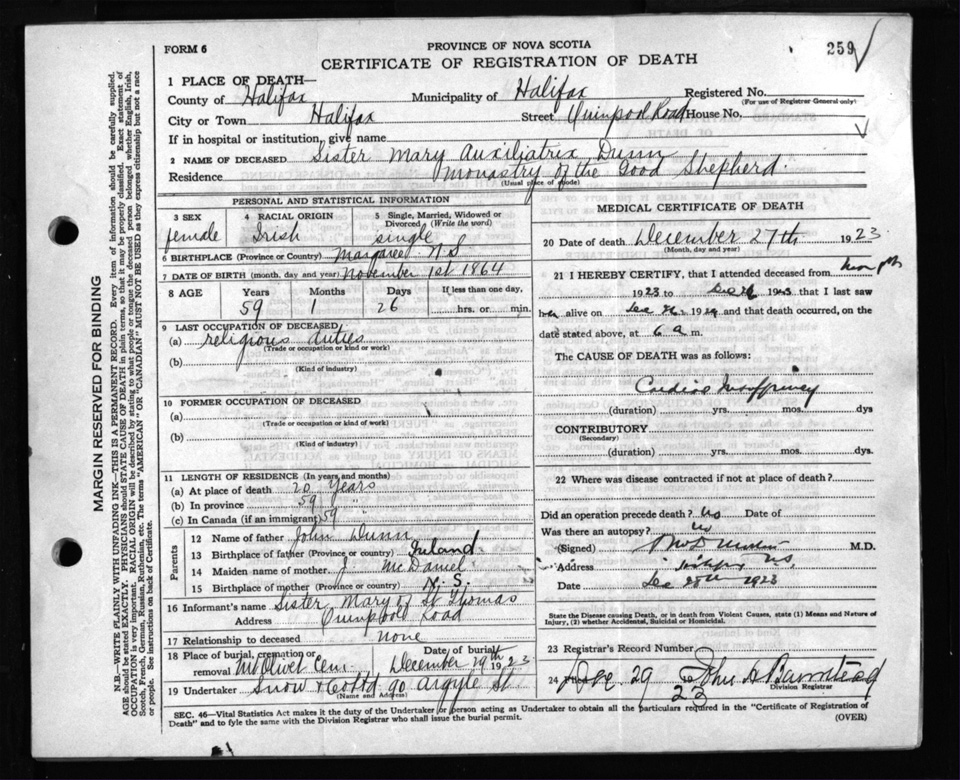 FORM 6
PROVINCE OF NOVA SCOTIA
259
CERTIFICATE OF REGISTRATION OF DEATH
1 PLACE OF DEATH—
County of Halifax Municipality of Halifax Registered No.
(For use of Registrar General only)
City or Town Halifax Street Quinpool Road House No.
If in hospital or institution, give name
2 NAME OF DECEASED Sister Mary Auxiliatrix Dunn
Residence Monastry of the Good Shepherd.
(Usual place of abode)
PERSONAL AND STATISTICAL INFORMATION
3 SEX 4 RACIAL ORIGIN 5 Single, Married, Widowed or Divorced (Write the word)
female Irish single
6 BIRTHPLACE (Province or Country) Margaree N S
7 DATE OF BIRTH (month, day and year) November 1st 1864
8 AGE Years Months Days If less than one day,
59 1 26 hrs. or min.
9 LAST OCCUPATION OF DECEASED
(a) religious duties
(Trade or occupation or kind of work)
(b)
(Kind of industry)
10 FORMER OCCUPATION OF DECEASED
(a)
(Trade or occupation or kind of work)
(b)
(Kind of industry)
11 LENGTH OF RESIDENCE (In years and months)
(a) At place of death 20 Years
(b) In province 59 "
(c) In Canada (if an immigrant) 59 "
Parents
12 Name of father John Dunn
13 Birthplace of father (Province or country) Ireland
14 Maiden name of mother J. McDaniel
15 Birthplace of mother (Province or country) N. S.
16 Informant's name Sister Mary of St Thomas
Address Quinpool Road
17 Relationship to deceased none
18 Place of burial, cremation or removal Mt Olivet Cem. Date of burial December 29th 1923
19 Undertaker Snow & Co Ltd 90 Argyle St
(Name and Address)
MEDICAL CERTIFICATE OF DEATH
20 Date of death December 27th 1923
(Month, day and year)
21 I HEREBY CERTIFY, that I attended deceased from
1923 to Dec 26 1923 that I last saw
her alive on Dec 26 192 and that death occurred, on the
date stated above, at 6 a m.
The CAUSE OF DEATH was as follows:
Cardiac
(duration) yrs. mos. dys
CONTRIBUTORY
(Secondary)
(duration) yrs. mos. dys.
22 Where was disease contracted if not at place of death?
Did an operation precede death? No Date of
Was there an autopsy? No
(Signed) M.D.
Address Halifax N.S.
Date Dec 28th 1923
State the Disease causing Death, or in death from Violent Causes, state (1) Means and Nature of
Injury, (2) whether Accidental, Suicidal or Homicidal.
23 Registrar's Record Number
24 Dec 29 23 John H Barnstead
Division Registrar
SEC. 46—Vital Statistics Act makes it the duty of the Undertaker or person acting as Undertaker to obtain all the particulars required in the "Certificate of Registration of
Death" and to fyle the same with the Division Registrar who shall issue the burial permit.
(OVER)
MARGIN RESERVED FOR BINDING
N.B.—WRITE PLAINLY WITH UNFADING INK—THIS IS A PERMANENT RECORD. Every item of information should be carefully supplied.
AGE should be stated EXACTLY. PHYSICIANS should STATE CAUSE OF DEATH in plain terms, so that it may be properly classified. Exact statement of
OCCUPATION is very important. RACIAL ORIGIN will be described by stating to what people or tongue the deceased person belonged whether English, Irish,
Scotch, French, German, Russian, Ruthenian, etc. The terms "AMERICAN" OR "CANADIAN" MUST NOT BE USED as they express citizenship but not a race
or people. See instructions on back of Certificate.